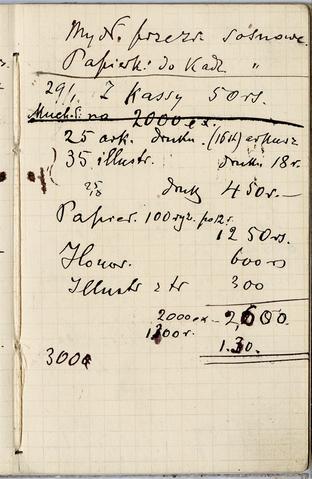 Mydł. przezr. sosnowe.
Papierki do Kadz. "
29/1 Z Kassy 50 rs.
na 2000 ex.
25 ark. druku. (16st)
35 illustr. druku 18 r.
25/18 druk 450 r.—
Papier. 100 ryz.
1250 rs.
Honor. 600 rs
Illustr z tr 300
2000 ex — 2,600.
1300 r. 1.30.
3000